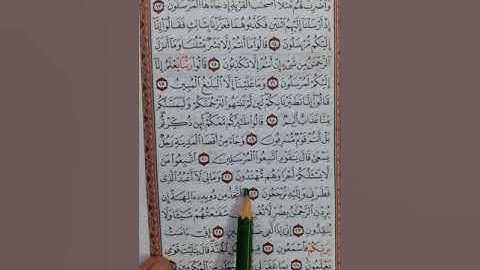 وَاضْرِبْ لَهُم مَّثَلًا أَصْحَٰبَ الْقَرْيَةِ إِذْ جَآءَهَا الْمُرْسَلُونَ ١٣
إِذْ أَرْسَلْنَآ إِلَيْهِمُ اثْنَيْنِ فَكَذَّبُوهُمَا فَعَزَّزْنَا بِثَالِثٍ فَقَالُوٓا۟ إِنَّآ
إِلَيْكُم مُّرْسَلُونَ ١٤ قَالُوا۟ مَآ أَنتُمْ إِلَّا بَشَرٌ مِّثْلُنَا وَمَآ أَنزَلَ
الرَّحْمَٰنُ مِن شَىْءٍ إِنْ أَنتُمْ إِلَّا تَكْذِبُونَ ١٥ قَالُوا۟ رَبُّنَا يَعْلَمُ إِنَّآ
إِلَيْكُمْ لَمُرْسَلُونَ ١٦ وَمَا عَلَيْنَآ إِلَّا الْبَلَٰغُ الْمُبِينُ ١٧
قَالُوٓا۟ إِنَّا تَطَيَّرْنَا بِكُمْ لَئِن لَّمْ تَنتَهُوا۟ لَنَرْجُمَنَّكُمْ وَلَيَمَسَّنَّكُم
مِّنَّا عَذَابٌ أَلِيمٌ ١٨ قَالُوا۟ طَٰٓئِرُكُم مَّعَكُمْ أَئِن ذُكِّرْتُم
بَلْ أَنتُمْ قَوْمٌ مُّسْرِفُونَ ١٩ وَجَآءَ مِنْ أَقْصَا الْمَدِينَةِ رَجُلٌ
يَسْعَىٰ قَالَ يَٰقَوْمِ اتَّبِعُوا۟ الْمُرْسَلِينَ ٢٠ اتَّبِعُوا۟ مَن
لَّا يَسْـَٔلُكُمْ أَجْرًا وَهُم مُّهْتَدُونَ ٢١ وَمَا لِىَ لَآ أَعْبُدُ الَّذِى
فَطَرَنِى وَإِلَيْهِ تُرْجَعُونَ ٢٢ ءَأَتَّخِذُ مِن دُونِهِۦٓ ءَالِهَةً إِن
يُرِدْنِ الرَّحْمَٰنُ بِضُرٍّ لَّا تُغْنِ شَفَٰعَتُهُمْ شَيْـًٔا وَلَا
يُنقِذُونِ ٢٣ إِنِّىٓ إِذًا لَّفِى ٢٤ إِنِّىٓ ءَامَنتُ
بِرَبِّكُمْ فَاسْمَعُونِ ٢٥ الْجَنَّةَ قَالَ يَٰلَيْتَ قَوْمِى
يَعْلَمُونَ ٢٦ بِمَا غَفَرَ لِى مِنَ الْمُكْرَمِينَ